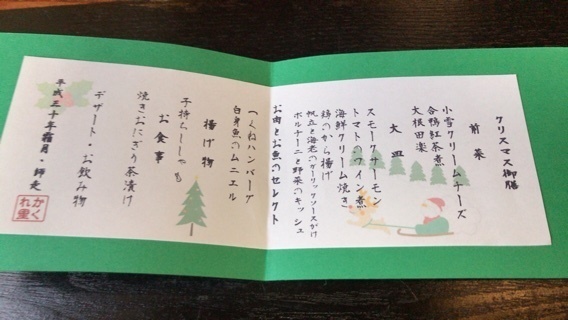 クリスマス御膳
前菜
小雪クリームチーズ
合鴨紅茶煮
大根田楽
大皿
スモークサーモン
トマトのワイン煮
海鮮クリーム焼き
鶏のから揚げ
帆立と海老のガーリックソースがけ
ポルチーニと野菜のキッシュ
お肉とお魚のセレクト
つくねハンバーグ
白身魚のムニエル
揚げ物
子持ちししゃも
お食事
焼きおにぎり茶漬け
デザート・お飲み物
平成三十年霜月・師走
かくれ里